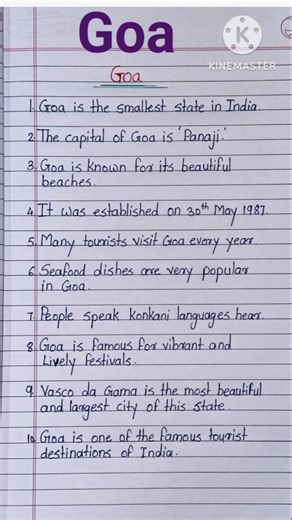 Goa
KINEMASTER
Goa
1. Goa is the smallest state in India.
2. The capital of Goa is 'Panaji.'
3. Goa is known for its beautiful
beaches.
4. It was established on 30th May 1987.
5. Many tourists visit Goa every year.
6. Seafood dishes are very popular
in Goa.
7. People speak konkani languages hear.
8. Goa is famous for vibrant and
Lively festivals.
9. Vasco da Gama is the most beautiful
and largest city of this state.
10. Goa is one of the famous tourist
destinations of India.